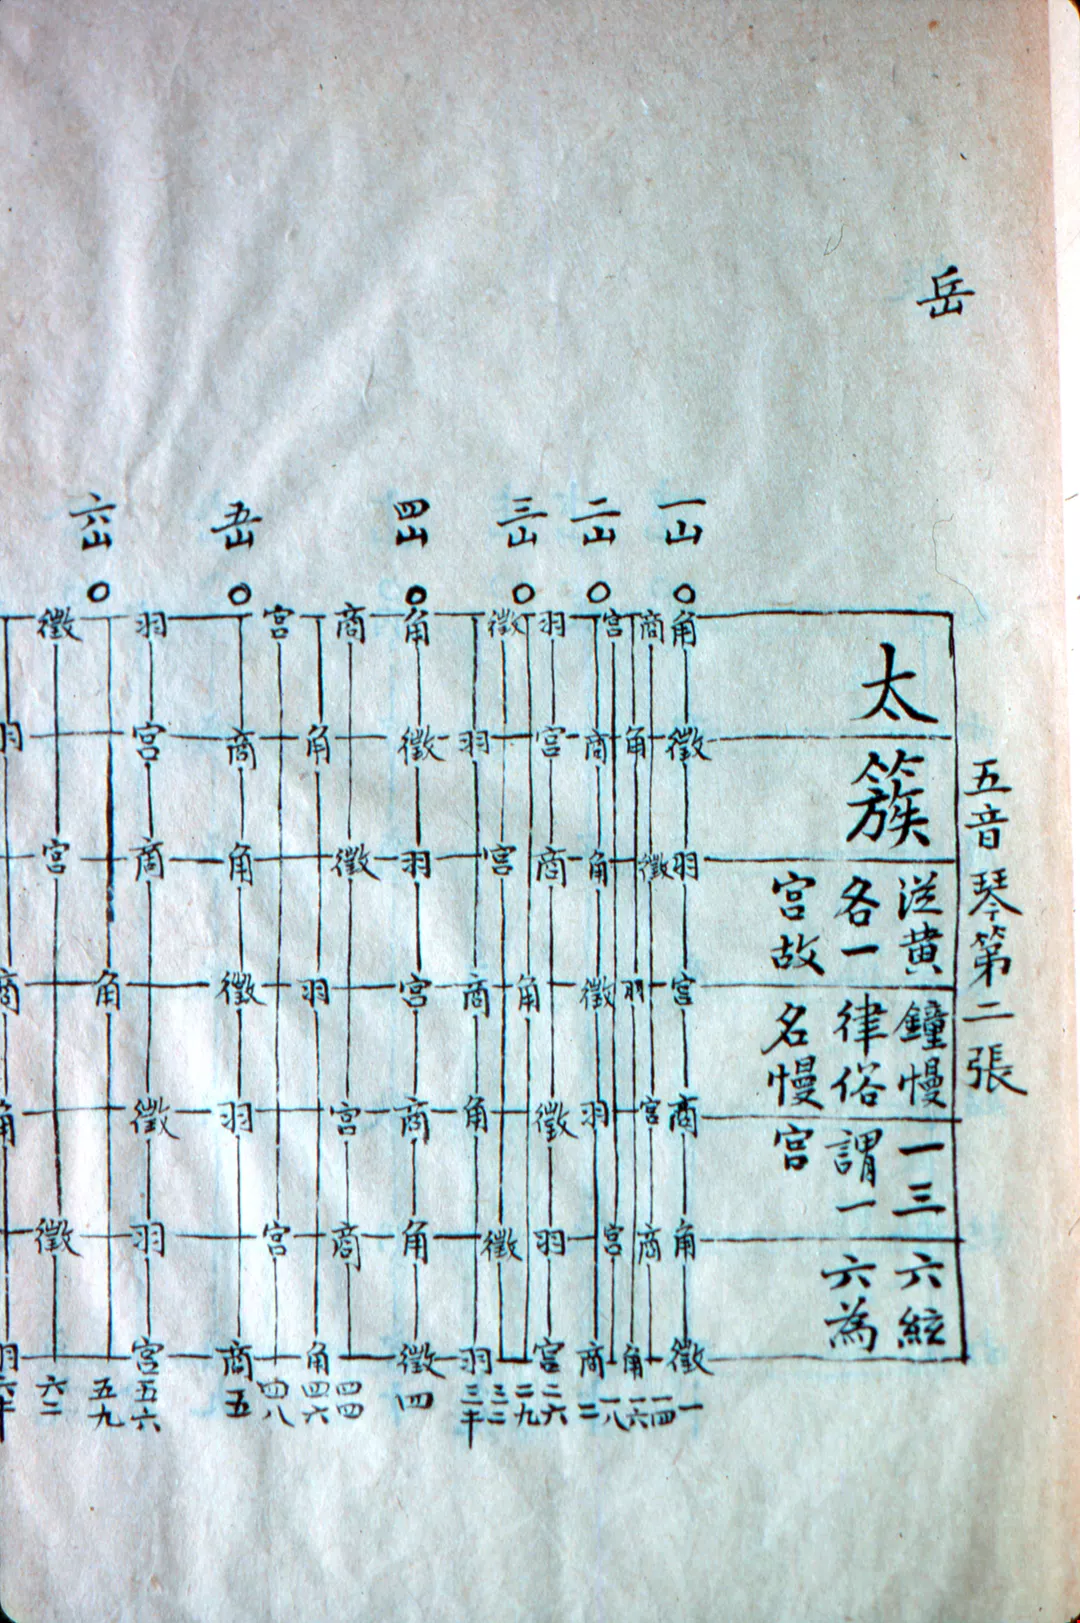 岳
五音琴第二張
太簇
從黃鐘慢一三六絃
各一律俗謂一六為
宮故名慢宮
一山
角徵羽宮商角徵一
商徵宮商一四
角羽角一六
宮宮一八
二山
商角徵羽商二
羽宮商徵羽宮二六
三山
角二九
徵宮徵三二
羽商角羽三半
四山
角徵羽宮商角徵四
商徵宮商四四
角羽角四六
宮宮四八
五山
商角徵羽商五
羽宮商徵羽宮五六
六山
角五九
徵宮徵六二
羽商角羽六半